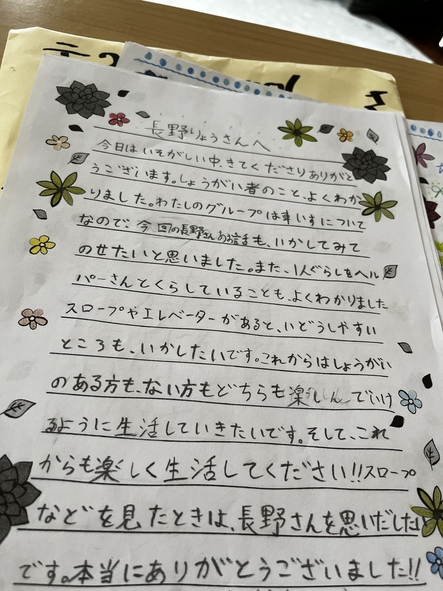 長野りょうさんへ
今日はいそがしい中、きてくださりありがと
うございます。しょうがい者のこと、よくわか
りました。わたしのグループは車いすについて
なので、今回の長野さんのお話も、いかしてみて
のせたいと思いました。また、1人ぐらしをヘル
パーさんとくらしていることも、よくわかりました
スロープやエレベーターがあると、いどうしやすい
ところも、いかしたいです。これからはしょうがい
のある方も、ない方もどちらも楽しんでいけ
るように生活していきたいです。そして、これ
からも楽しく生活してください!!スロープ
などを見たときは、長野さんを思いだしたい
です。本当にありがとうございました!!